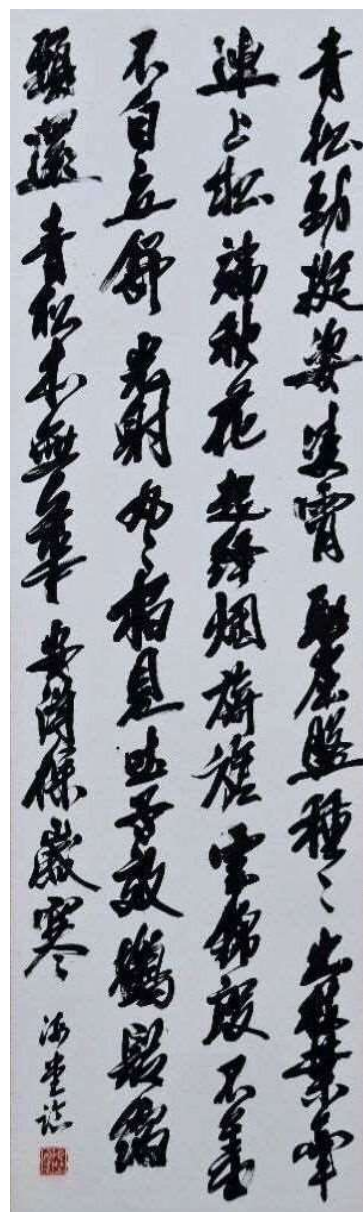 青松勁挺姿凌霄恥屈盤種〻出枝葉牽
連上松端秋花起絳烟旖旎雲錦殷不羞
不自立舒光射丸〻柏見吐子效鶴髮縮
頸還青松本無華安得保歲寒